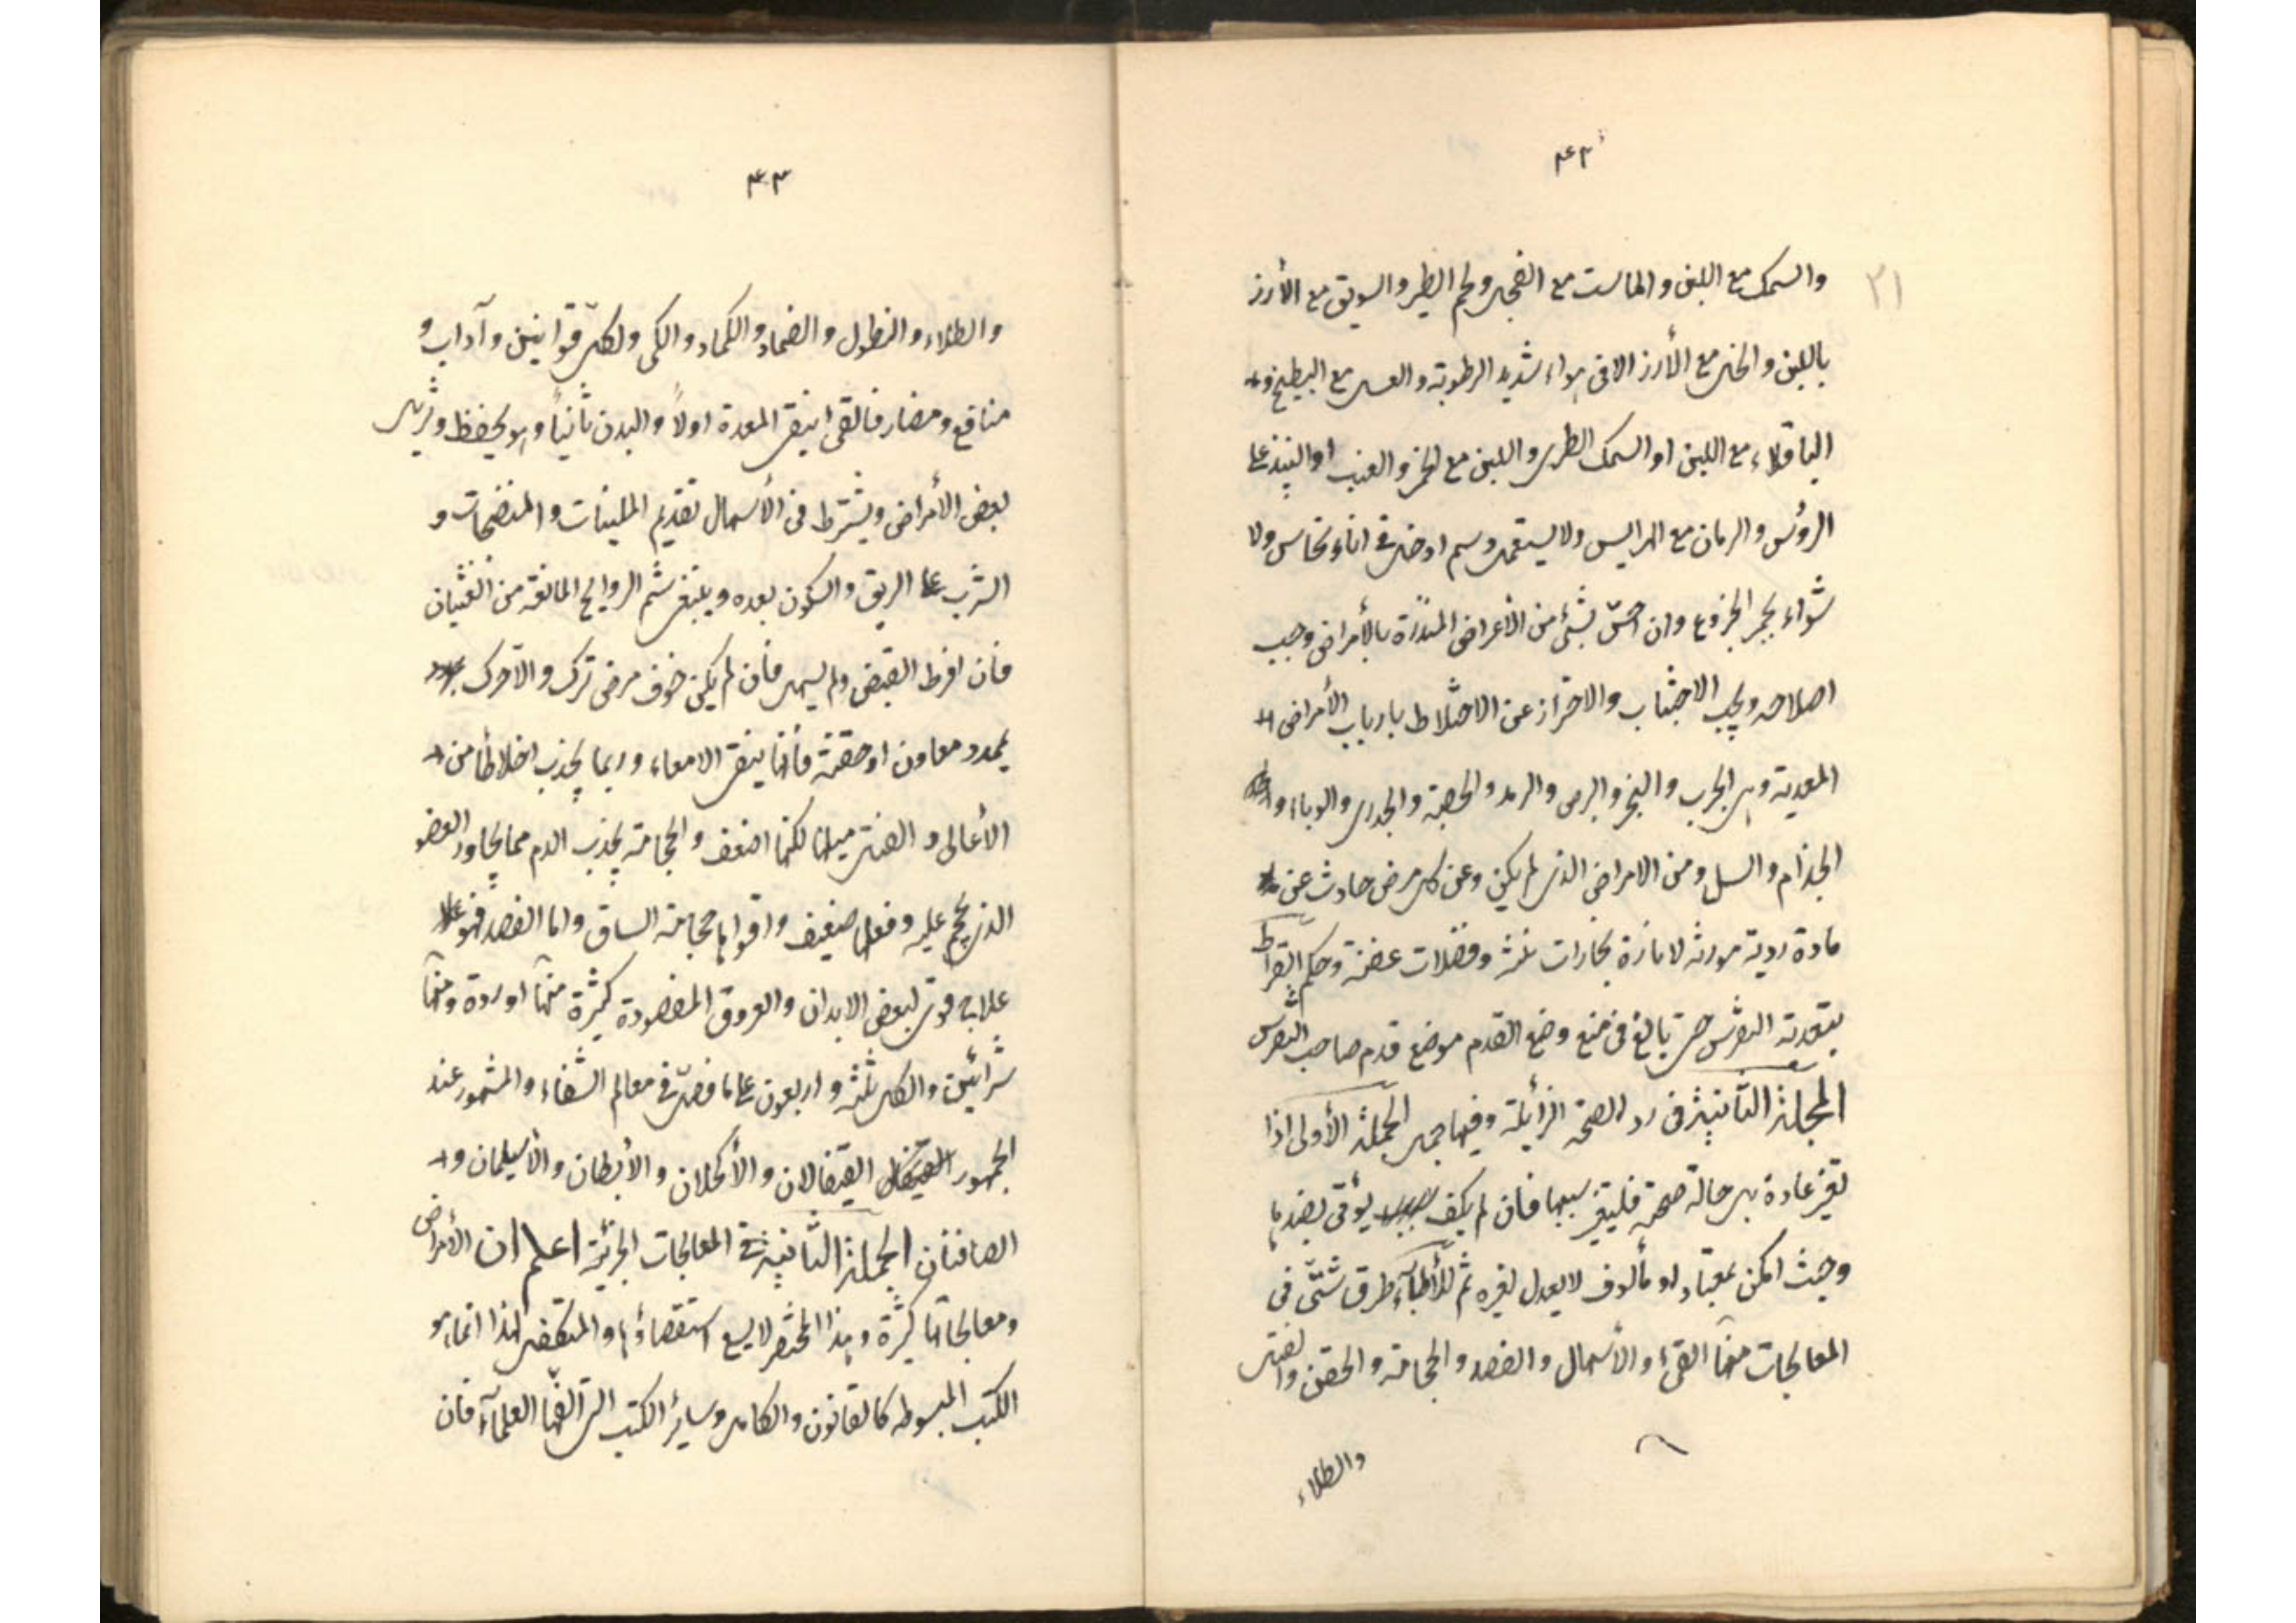 ٤٢
٢١
والسمك مع اللبن والماست مع الفجل ولحم الطير والسويق مع الأرز
باللبن والخل مع الأرز الا فى هواء شديد الرطوبة والعسل مع البطيخ و
الباقلاء مع اللبن او السمك الطرى واللبن مع الخمر والعنب او النبيذ على
الرؤس والرمان مع الهرايس ولا يستعمل دسم او خل فى اناء نحاس ولا
شواء بجمر الخروع وان احسّ بشئ من الأعراض المنذرة بالأمراض وجب
اصلاحه ويجب الاجتناب والاحتراز عن الاختلاط بارباب الأمراض
المعدية وهى الجرب والبخر والبرص والرمد والحصبة والجدرى والوباء و
الجذام والسل ومن الامراض الذى لم يكن وعن كل مرض حادث عن
مادة ردية مورثه لاثارة بخارات نتنه وفضلات عفنة وحكم البقراط
بتعدية النقرس حتى بالغ فى منع وضع القدم موضع قدم صاحب النقرس
المجلة الثانية فى رد الصحة الزائلة وفيها جمل الجملة الأولى اذا
تغير عادة هى حالة صحة فليتغير سببها فان لم يكف يؤتى بضدها
وحيث امكن بمعتاد او مألوف لا يعدل لغيره ثم للأطبآء طرق شتّى فى
المعالجات منها القئ والأسهال والفصد والحجامة والحقن والفتل
والطلاء
٤٣
والطلاء والنطول والضماد والكماد والكى ولكلّ قوانين وآداب و
منافع ومضار فالقئ ينقى المعدة اولاً والبدن ثانياً وهو يحفظ ويزيل
بعض الأمراض ويشترط فى الأسهال تقديم الملينات والمنضجات و
الشرب على الريق والسكون بعده وينبغى شم الروايح المانعة من الغثيان
فان افرط القبض ولم يسهل فان لم يكن خوف مرض ترك والا حرك
بممدد معاون او حقنة فأنها ينقى الامعاء وربما يجذب اخلاطاً من
الأعالى و الفتل مثلها لكنها اضعف والحجامة يجذب الدم مما يجاور العضو
الذى يحجم عليه وفعلها ضعيف واقواها حجامة الساق واما الفصد فهو
علاج قوى لبعض الابدان والعروق المفصودة كثيرة منها اوردة ومنها
شرائين والكل ثلثة واربعون على ما فصّل فى معالم الشفاء والمشهور عند
الجمهور القيفالان والأكحلان والأبطان والأسيلمان و
الصافنان الجملة الثانية فى المعالجات الجزئية اعلم ان الأمراض
ومعالجاتها كثيرة وهذا المختصر لا يسع استقصاؤها والمتكفل لهذا انما هو
الكتب المبسوطه كالقانون والكامل وسائر الكتب التى الفها العلمآء فان